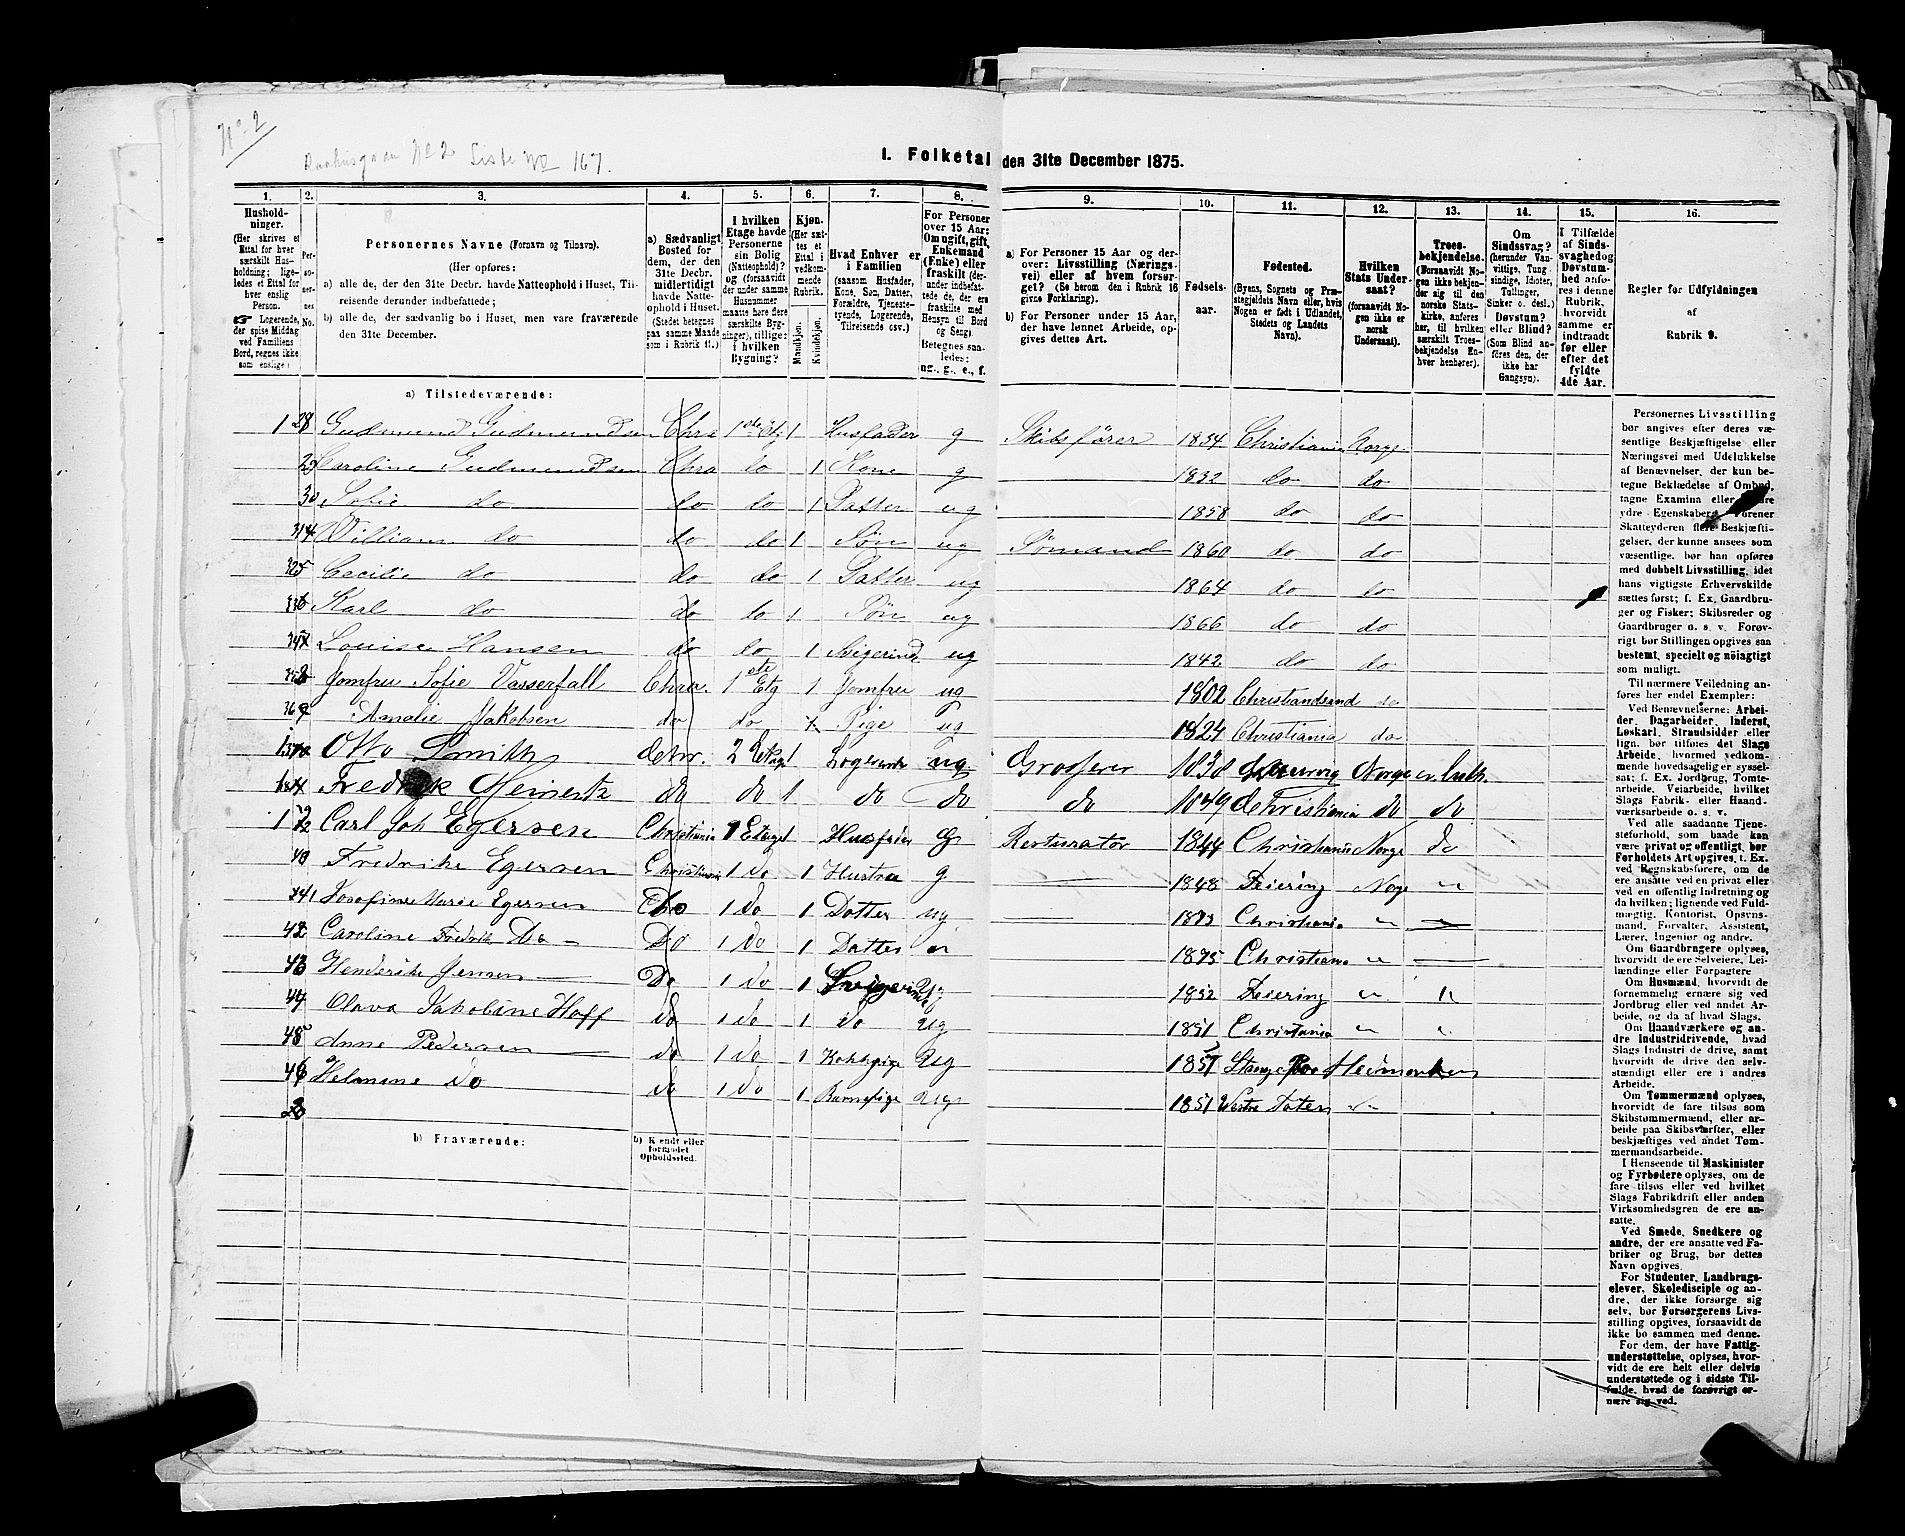 No. 2
No 2 Liste No 167.
I. Folketal den 31te December 1875.
1. 2. 3. 4. 5. 6. 7. 8. 9. 10. 11. 12. 13. 14. 15. 16.
Husholdninger.
(Her skrives et Ettal for hver særskilt Husholdning; ligeledes et Ettal for hver enslig Person.
☛ Logerende, der spise Middag ved Familiens Bord, regnes ikke som enslige)
Personernes No.
Personernes Navne (Fornavn og Tilnavn).
(Her opføres:
a) alle de, der den 31te Decbr. havde Natteophold i Huset, Tilreisende derunder indbefattede;
b) alle de, der sædvanlig bo i Huset, men vare fraværende den 31te December.
a) Sædvanligt Bosted for dem, der den 31te Decbr. midlertidigt havde Natteophold i Huset.
(Stedet betegnes paa samme Maade som i Rubrik 11.)
I hvilken Etage havde Personerne sin Bolig (Natteophold)?
Kjøn.
(Her sættes et Ettal i vedkommende Rubrik.
Mandkjøn. Kvindekjøn.
Hvad Enhver er i Familien
(saasom Husfader, Kone, Søn, Datter, Forældre, Tjenestetyende, Logerende, Tilreisende osv.)
For Personer over 15 Aar: Om ugift, gift, Enkemand (Enke) eller fraskilt
Betegnes saaledes: ug., g., e., f.
a) For Personer 15 Aar og derover: Livsstilling (Næringsvei) eller af hvem forsørget? (Se herom den i Rubrik 16 givne Forklaring).
b) For Personer under 15 Aar, der have lønnet Arbeide, opgives dettes Art.
Fødselsaar.
Fødested.
(Byens, Sognets og Præstegjeldets Navn eller, hvis Nogen er født i Udlandet, Stedets og Landets Navn).
Hvilken Stats Undersaat?
(forsaavidt Nogen ikke er norsk Undersaat).
Troesbekjendelse.
(Forsaavidt Nogen ikke bekjender sig til den norske Statskirke, anføres her, til hvilken særskilt Troesbekjendelse Enhver henhører).
Om Sindssvag? (herunder Vanvittige, Tungsindige, Idioter, Tullinger, Sinker o. desl.) Døvstum? eller Blind? (Som Blind anføres den, der ikke har Gangsyn).
I Tilfælde af Sindssvaghed og Døvstumhed anføres i denne Rubrik, hvorvidt samme er indtraadt før eller efter det fyldte 4de Aar.
Regler for Udfyldningen af Rubrik 9.
a) Tilstedeværende:
1 28 Gudmund Gudmundsen Chra 1ste Etg 1 Husfader g Skibsfører 1834 Christiania Norge
29 Caroline Gudmundsen Chra do 1 Kone g 1832 do do
30 Sofie do do do 1 Datter ug 1858 do do
31 William do do do 1 Søn ug Sømand 1860 do do
32 Cecilie do do do 1 Datter ug 1864 do do
33 Karl do do do 1 Søn ug 1866 do do
34 Louise Hansen do do 1 Svigerinde ug 1842 do do
35 Jomfru Sofie Vasserfall Chra. 1ste Etg 1 Jomfru ug 1802 Christiansand do
36 Amalie Jakobsen do do Pige ug 1824 Christiania do
1 37 Otto Smith Chr. 2 Etage 1 Logerende ug. Grosserer 1838 Laurvig Norge ev. luth.
Fredrik Meinertz do do 1 do do do 1849 Christiania do do
1 Carl Joh Egersen Christiania 1 Etage 1 Husfader G Resturatør 1844 Christiania Norge do
40 Fredrike Egersen Christiania 1 do 1 Hustru g 1848 Feiering Norge "
41 Josefine Marie Egersen Do 1 do 1 Datter ug 1873 Christiania "
42 Caroline Fredrik Do Do 1 do 1 Datter " 1875 Christiania "
43 Henderike Jensen Do 1 do 1 Svigerinde Ug 1852 Feiering " "
44 Olava Jakobine Hoff do 1 do 1 do Ug 1851 Christiania " "
45 Anne Pedersen do 1 do 1 Kokkepige Ug 1851 Stange paa Hedemarken
46 Helmine do do 1 do 1 Barnepige Ug 1851 Vestre Toten "
b) Fraværende:
b) Kjendt eller formodet Opholdssted.
Personernes Livsstilling bør angives efter deres væsentlige Beskjæftigelse eller Næringsvei med Udelukkelse af Benævnelser, der kun betegne Beklædelse af Ombud, tagne Examina eller andre ydre Egenskaber. Forener Skatteyderen flere Beskjæftigelser, der kunne ansees som væsentlige, bør han opføres med dobbelt Livsstilling, idet hans vigtigste Erhvervskilde sættes først; f. Ex. Gaardbruger og Fisker; Skibsreder og Gaardbruger o. s. v. Forøvrigt bør Stillingen opgives saa bestemt, specielt og nøiagtigt som muligt.
Til nærmere Veiledning anføres her endel Exempler:
Ved Benævnelserne: Arbeider, Dagarbeider, Inderst, Løskarl, Strandsidder eller lign. bør tilføies det Slags Arbeide, hvormed vedkommende hovedsagelig er sysselsat; f. Ex. Jordbrug, Tomtearbeide, Veiarbeide, hvilket Slags Fabrik- eller Haandværksarbeide o. s. v.
Ved alle saadanne Tjenesteforhold, som baade kan være privat og offentligt, bør Forholdets Art opgives, t. Ex. ved Regnskabsførere, om de ere ansatte ved en privat eller ved en offentlig Indretning og da hvilken; lignende ved Fuldmægtig, Kontorist, Opsynsmand, Forvalter, Assistent, Lærer, Ingeniør og andre.
Om Gaardbrugere oplyses, hvorvidt de ere Selveiere, Leilændinge eller Forpagtere
Om Husmænd, hvorvidt de fornemmelig ernære sig ved Jordbrug eller ved andet Arbeide, og da af hvad Slags.
Om Haandværkere og andre Industridrivende, hvad Slags Industri de drive, samt hvorvidt de drive den selvstændigt eller ere i andres Arbeide.
Om Tømmermænd oplyses, hvorvidt de fare tilsøs som Skibstømmermænd, eller arbeide paa Skibsværfter, eller beskjæftiges ved andet Tømmermandsarbeide.
I Henseende til Maskinister og Fyrbødere oplyses, om de fare tilsøs eller ved hvilket Slags Fabrikdrift eller anden Virksomhedsgren de ere ansatte.
Ved Smede, Snedkere og andre, der ere ansatte ved Fabriker og Brug, bør dettes Navn opgives.
For Studenter, Landbrugselever, Skoledisciple og andre, der ikke forsørge sig selv, bør Forsørgerens Livsstilling opgives, forsaavidt de ikke bo sammen med denne.
For dem, der have Fattigunderstøttelse, oplyses, hvorvidt de ere helt eller delvis understøttede og i sidste Tilfælde, hvad de forøvrigt ernære sig ved.